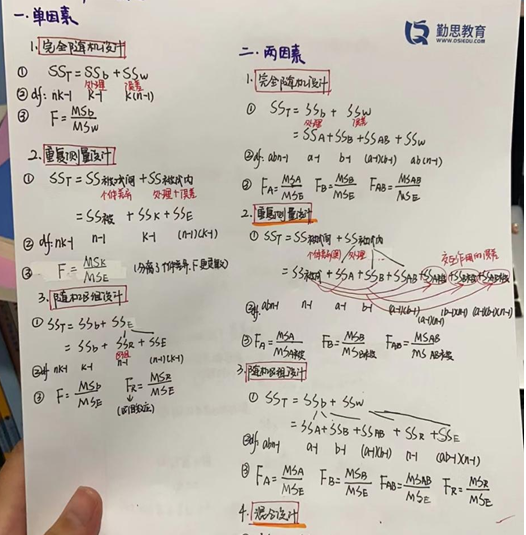 一.单因素
1.完全随机设计
① SST = SSb + SSw
处理 误差
② df: nk-1 k-1 k(n-1)
③ F = MSb/MSw
2.重复测量设计
① SST = SS被试间 + SS被试内
个体差异 处理+误差
= SS被 + SSK + SSE
② df: nk-1 n-1 k-1 (n-1)(k-1)
③ F = MSK/MSE (分离了个体差异, F更灵敏)
3.随机区组设计
① SST = SSb + SSE
= SSb + SSR + SSE
区组
② df nk-1 k-1 n-1 (n-1)(k-1)
③ F = MSb/MSE FR = MSR/MSE
(区组效应)
勤思教育
WWW.QSIEDU.COM
二.两因素
1.完全随机设计
① SST = SSb + SSw
处理 误差
= SSA + SSB + SSAB + SSw
② df: abn-1 a-1 b-1 (a-1)(b-1) ab(n-1)
③ FA = MSA/MSE FB = MSB/MSE FAB = MSAB/MSE
2.重复测量设计
① SST = SS被试间 + SS被试内
个体差异(间) 处理 交互作用的误差
= SS被试 + SSA + SSB + SSAB + SSA被 + SSB被 + SSAB被
② df: abn-1 n-1 a-1 b-1 (a-1)(b-1) (a-1)(n-1) (b-1)(n-1) (a-1)(b-1)(n-1)
③ FA = MSA/MSA被 FB = MSB/MSB被 FAB = MSAB/MSAB被
3.随机区组设计
① SST = SSb + SSW
= SSA + SSB + SSAB + SSR + SSE
② df: abn-1 a-1 b-1 (a-1)(b-1) n-1 (ab-1)(n-1)
③ FA = MSA/MSE FB = MSB/MSE FAB = MSAB/MSE FR = MSR/MSE
4.混合设计